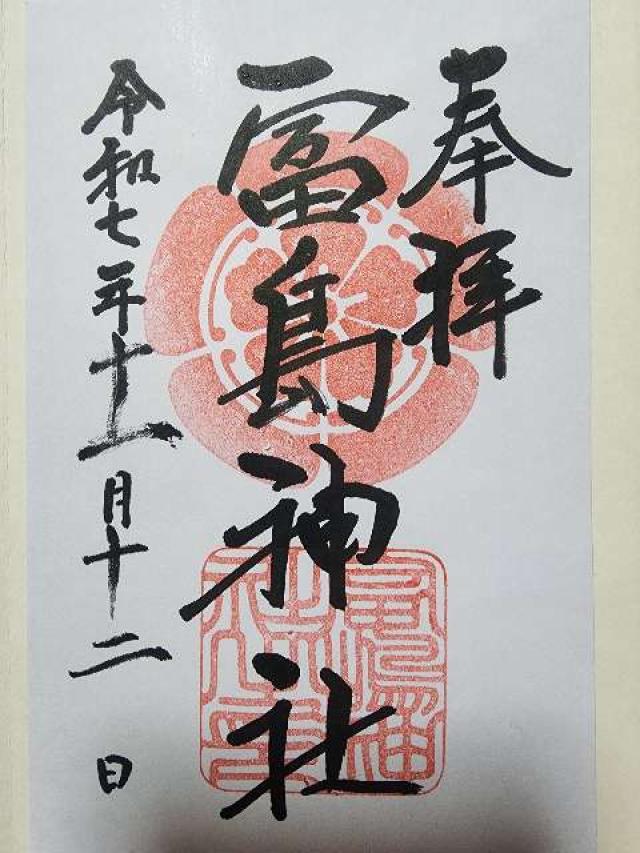 奉拝
冨島神社
令和七年十一月十二日